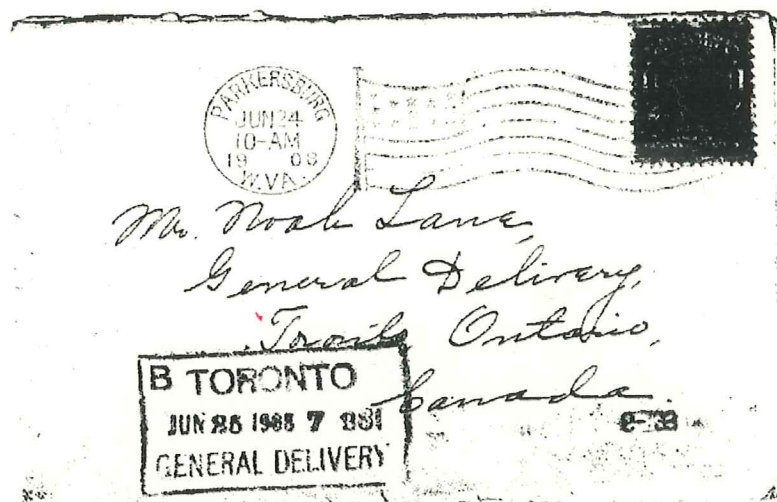 PARKERSBURG
JUN 24
10-AM
19 08
W.VA.
Mr. Noah Lane,
General Delivery,
Toronto Ontario,
Canada.
B TORONTO
JUN 25
GENERAL DELIVERY